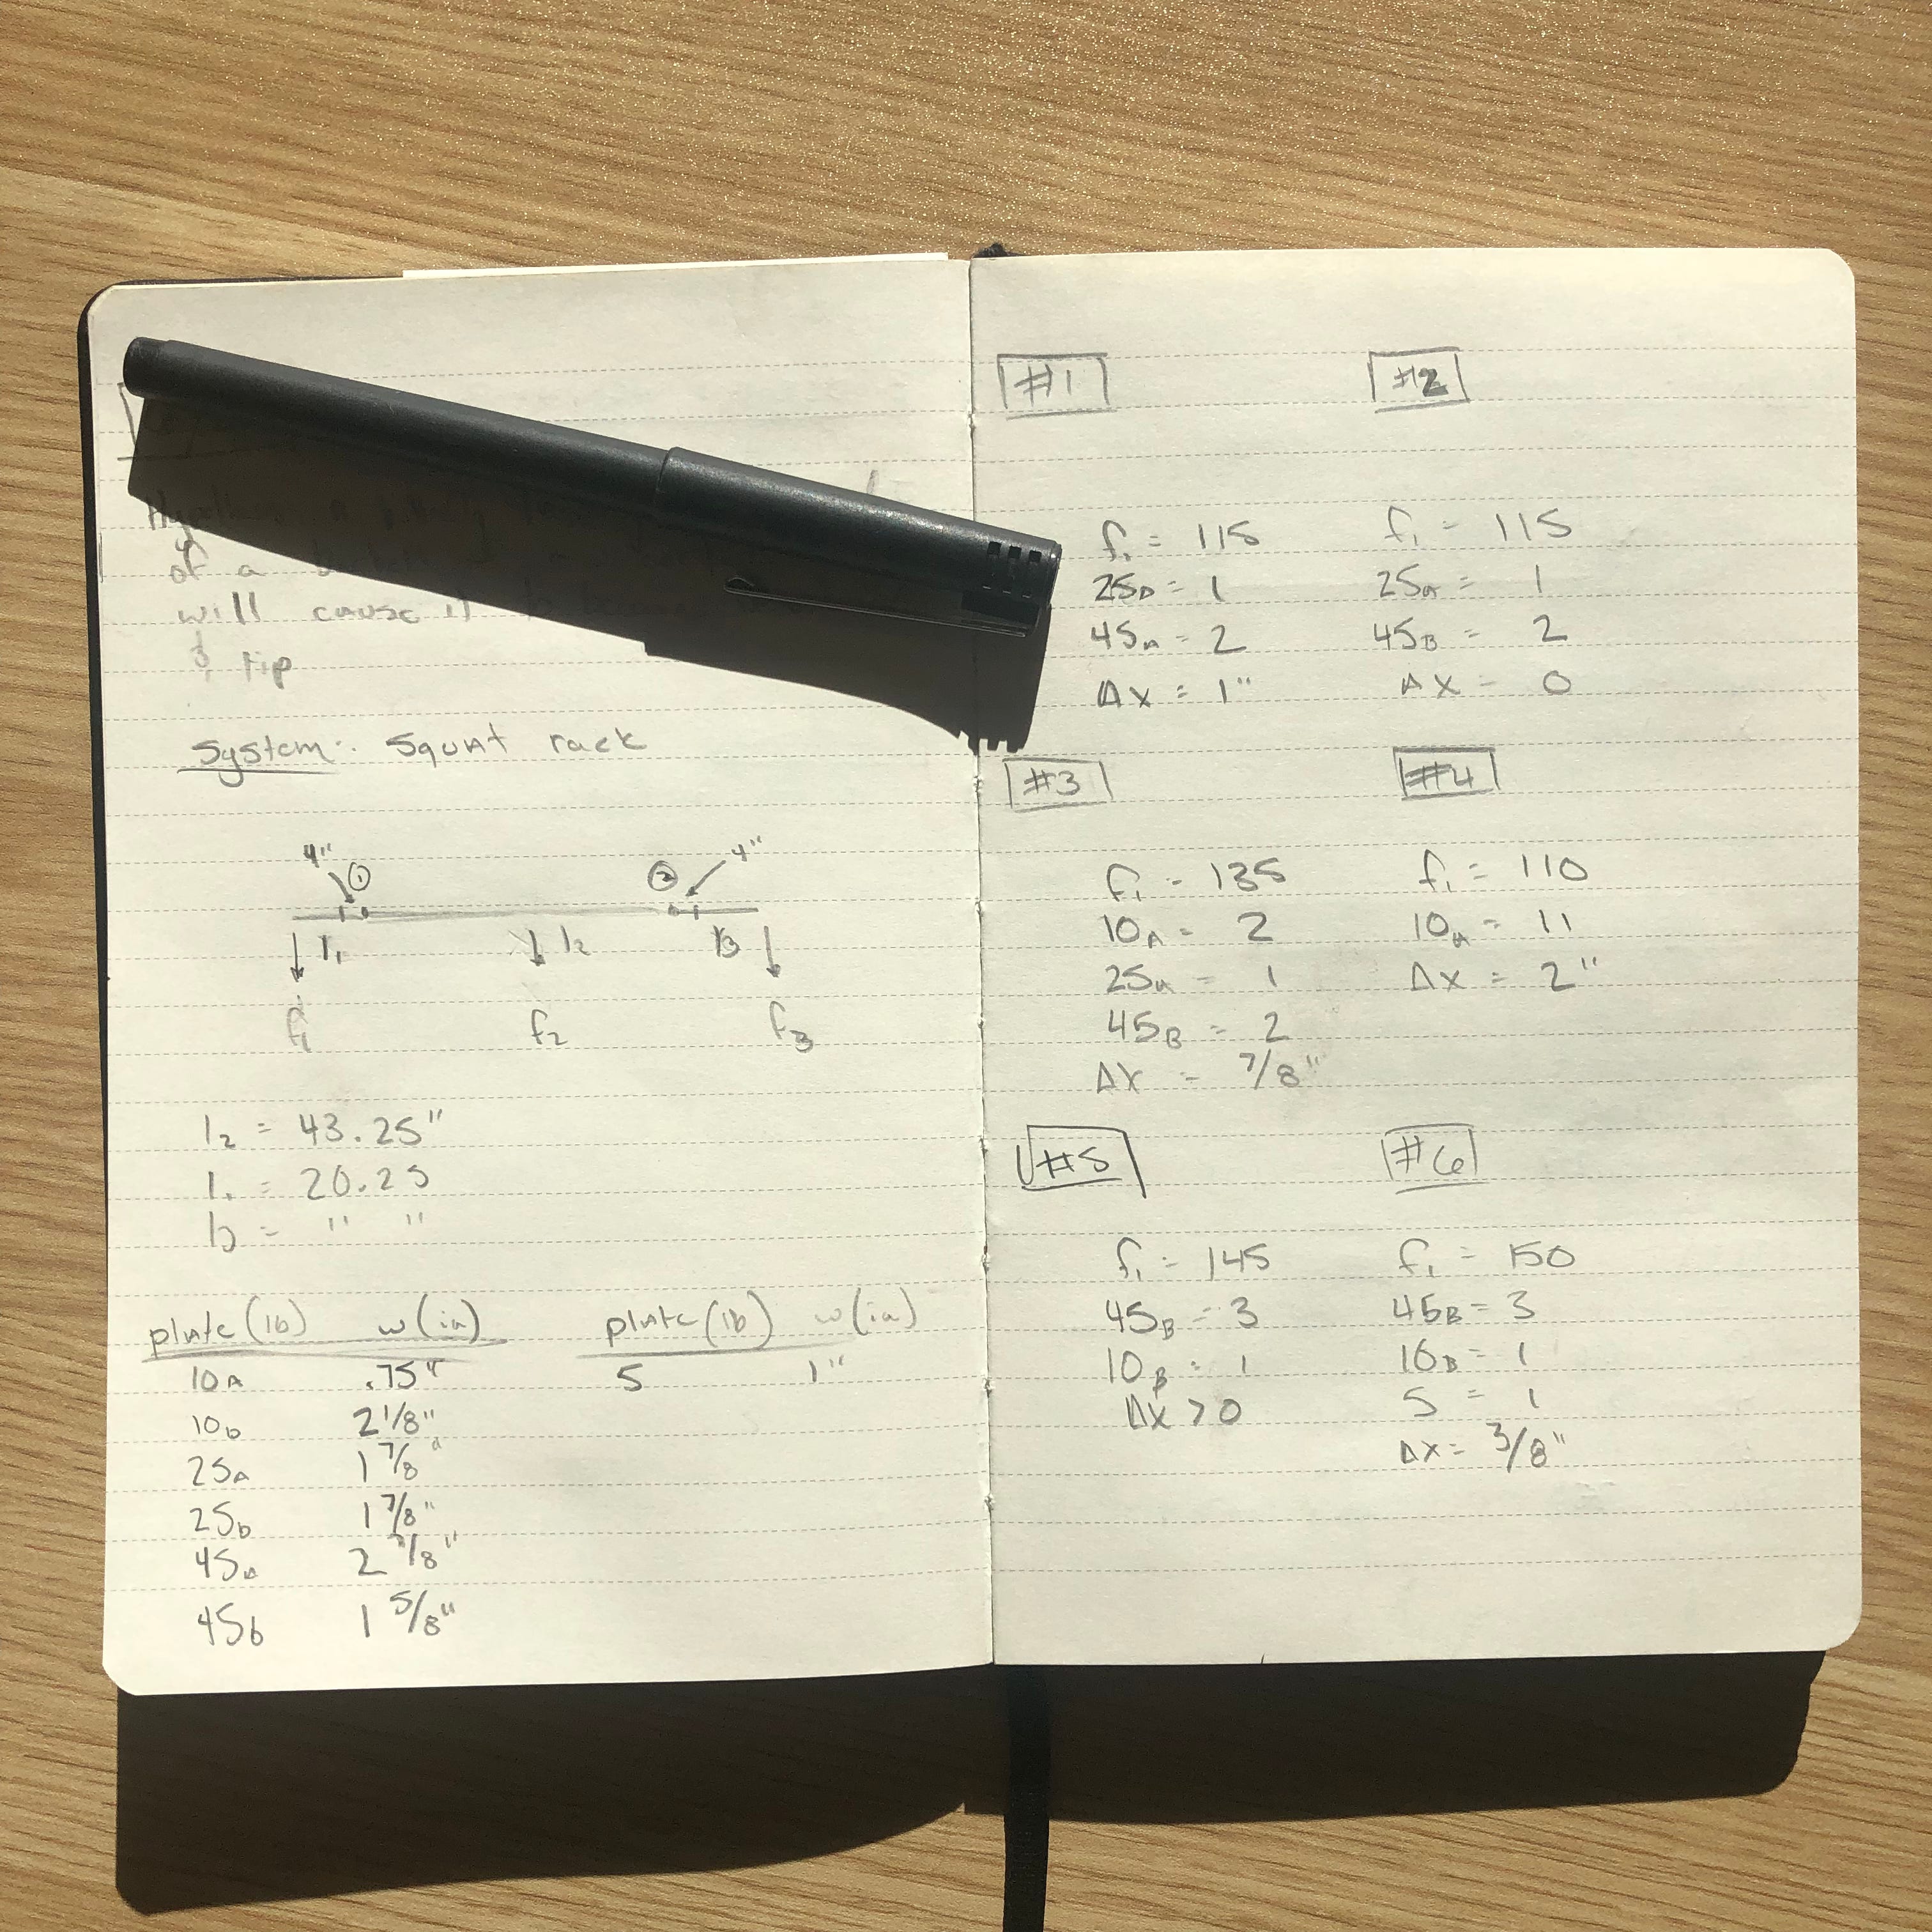 of a
will cause it
& tip
System: Squat rack
4" ① ② 4"
l₁ l₂ l₃
f₁ f₂ f₃
l₂ = 43.25"
l₁ = 20.25
l₃ = " "
plate (lb) w (in) plate (lb) w (in)
10A .75" 5 1"
10b 2 1/8"
25A 1 7/8"
25b 1 7/8"
45A 2 7/8"
45b 1 5/8"
#1
f₁ = 115
25B = 1
45A = 2
Δx = 1"
#2
f₁ = 115
25A = 1
45B = 2
Δx = 0
#3
f₁ = 135
10A = 2
25A = 1
45B = 2
Δx = 7/8"
#4
f₁ = 110
10A = 11
Δx = 2"
#5
f₁ = 145
45B = 3
10B = 1
Δx > 0
#6
f₁ = 150
45B = 3
10B = 1
5 = 1
Δx = 3/8"